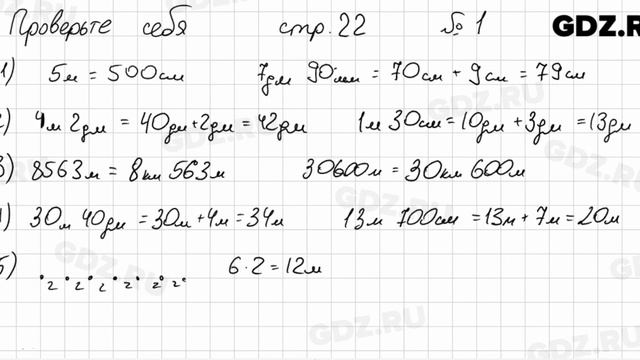 Проверьте себя стр. 22 № 1 GDZ.R
1) 5м = 500см 7дм 90мм = 70см + 9см = 79см
2) 4м 2дм = 40дм+2дм = 42дм 1м 30см = 10дм + 3дм = 13дм
3) 8563м = 8км 563м 30600м = 30км 600м
4) 30м 40дм = 30м + 4м = 34м 13м 700см = 13м + 7м = 20м
5) 2 2 2 2 2 2 6·2 = 12м
GDZ.RU
GDZ.RU
GDZ.RU
GDZ.RU
GDZ.RU